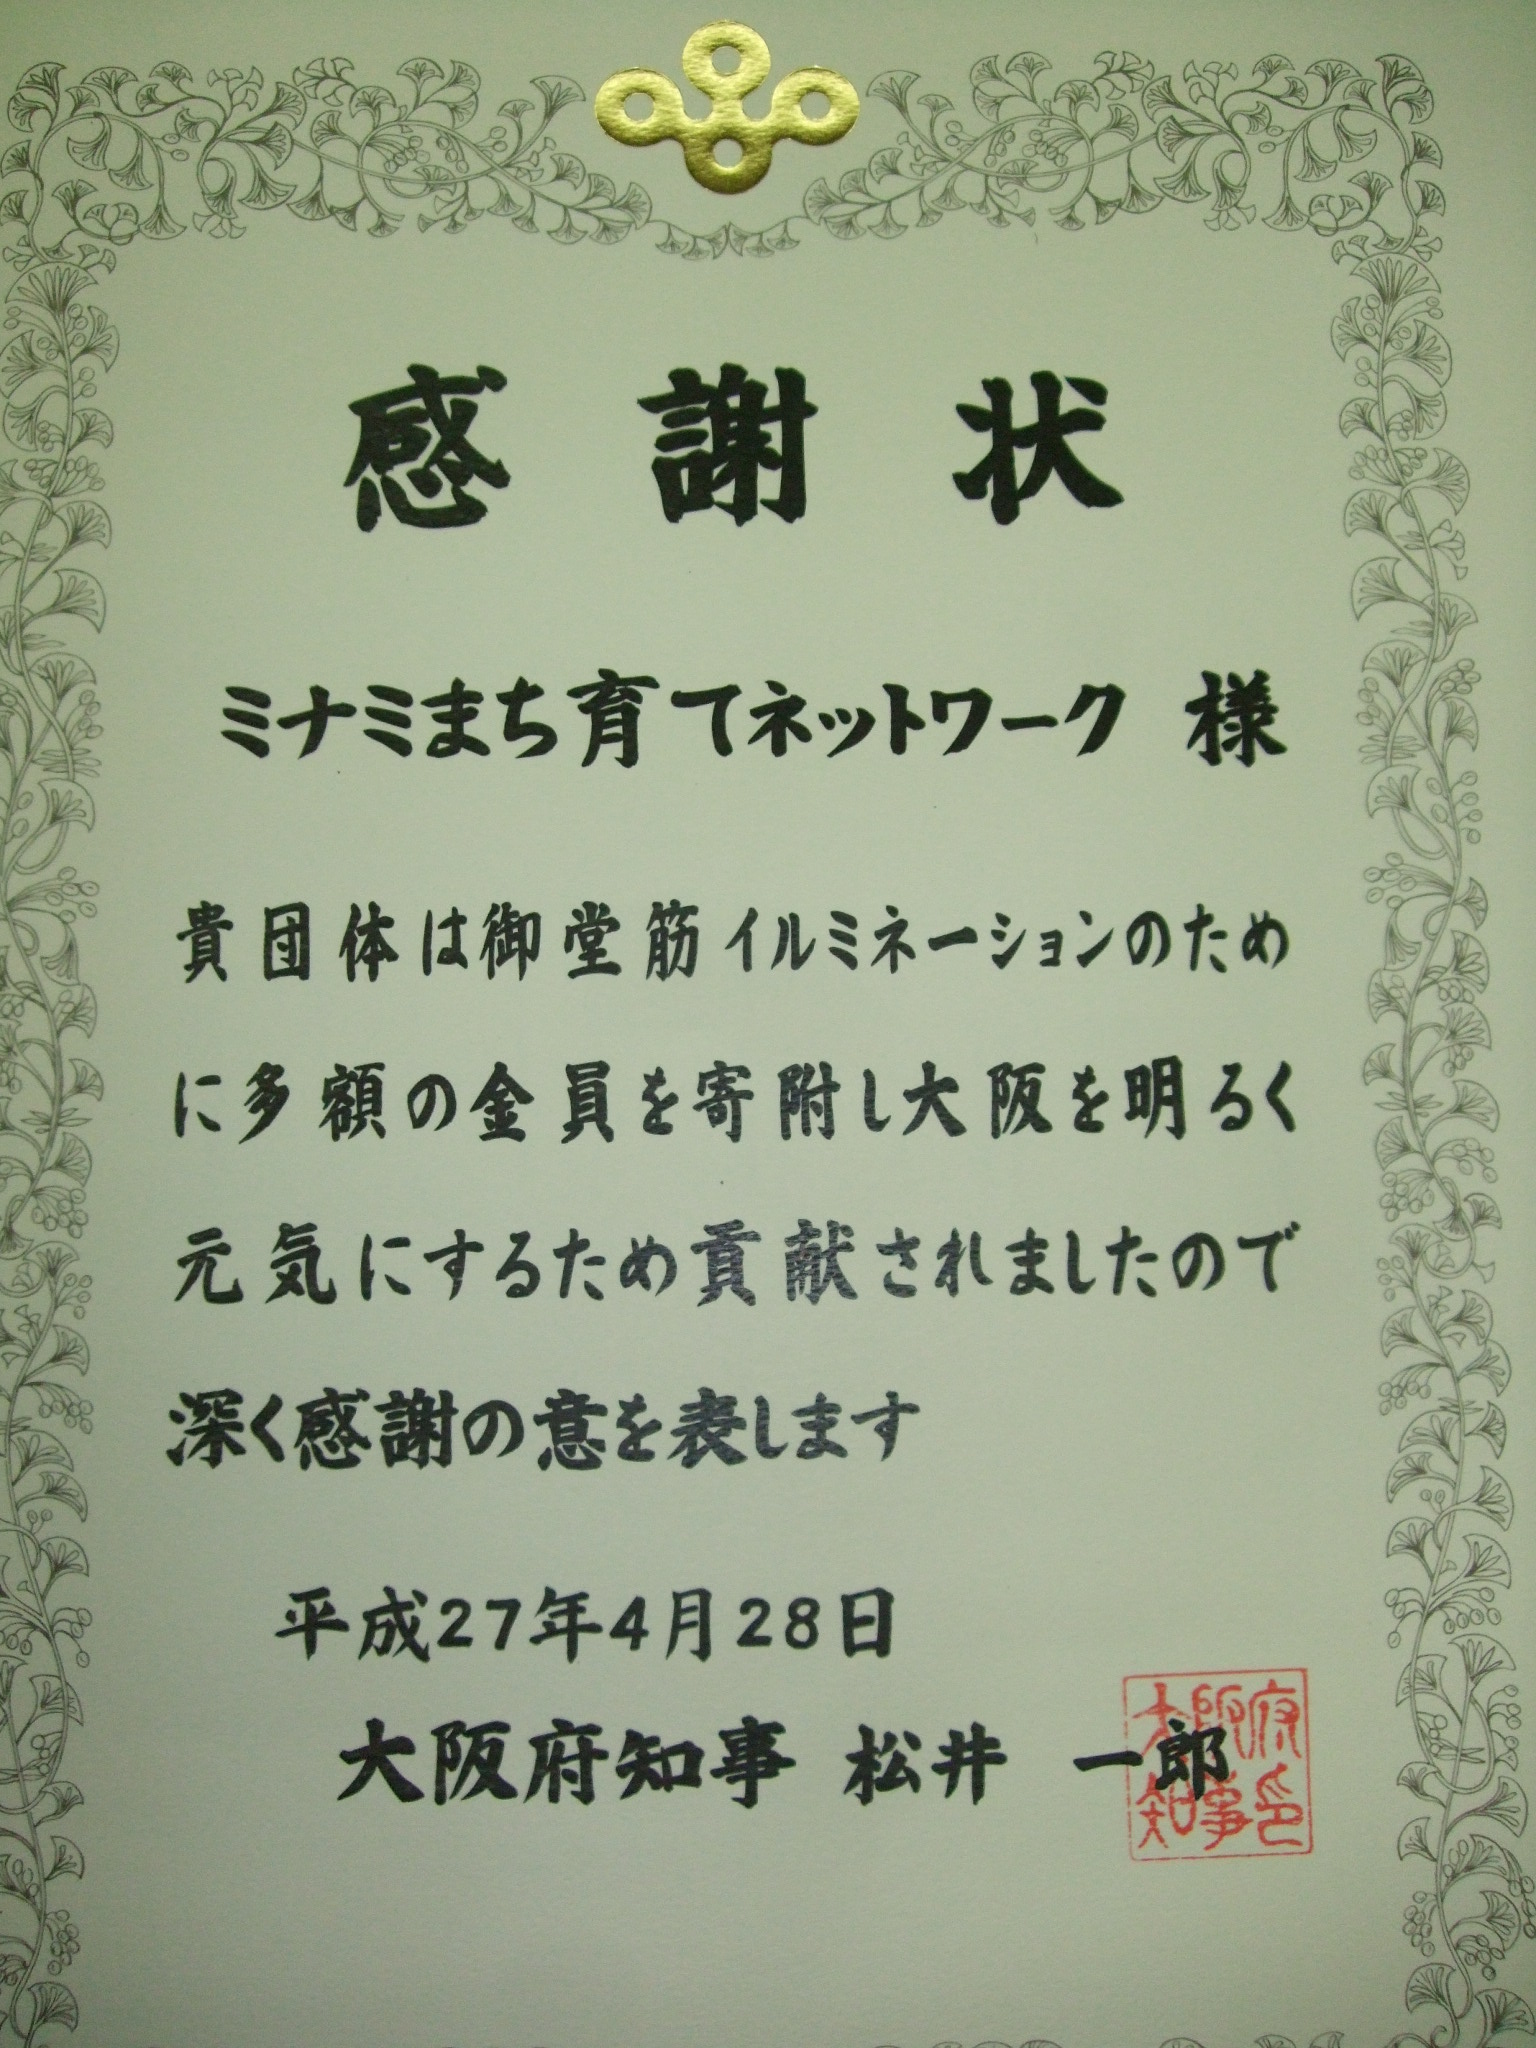 感謝状
ミナミまち育てネットワーク 様
貴団体は御堂筋イルミネーションのため
に多額の金員を寄附し大阪を明るく
元気にするため貢献されましたので
深く感謝の意を表します
平成27年4月28日
大阪府知事 松井 一郎
大阪府知事印